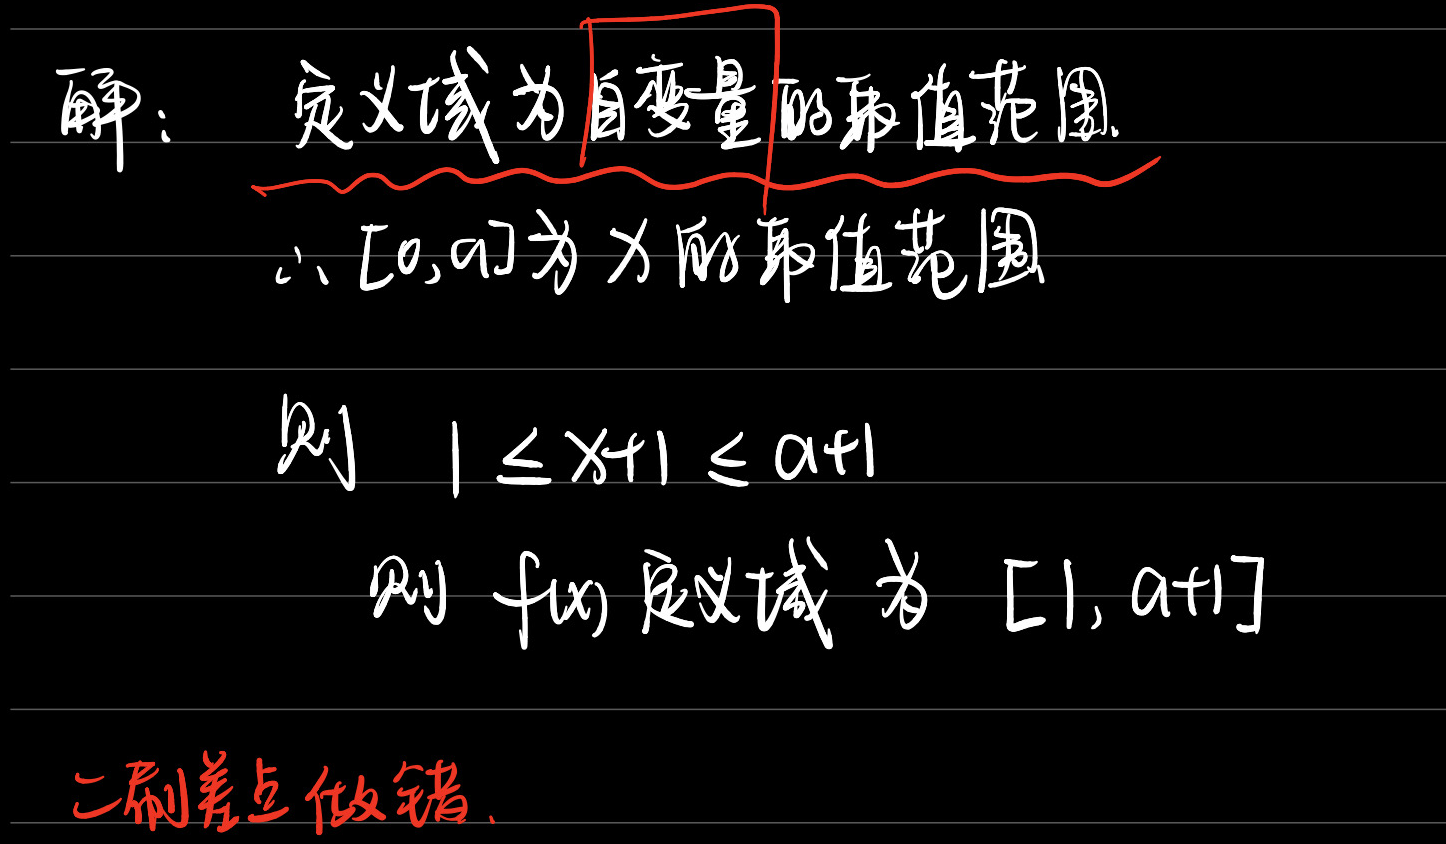 解： 定义域为自变量的取值范围.
∴ [0,a]为x的取值范围
则 1 ≤ x+1 ≤ a+1
则 f(x) 定义域 为 [1, a+1]
二刷差点做错.